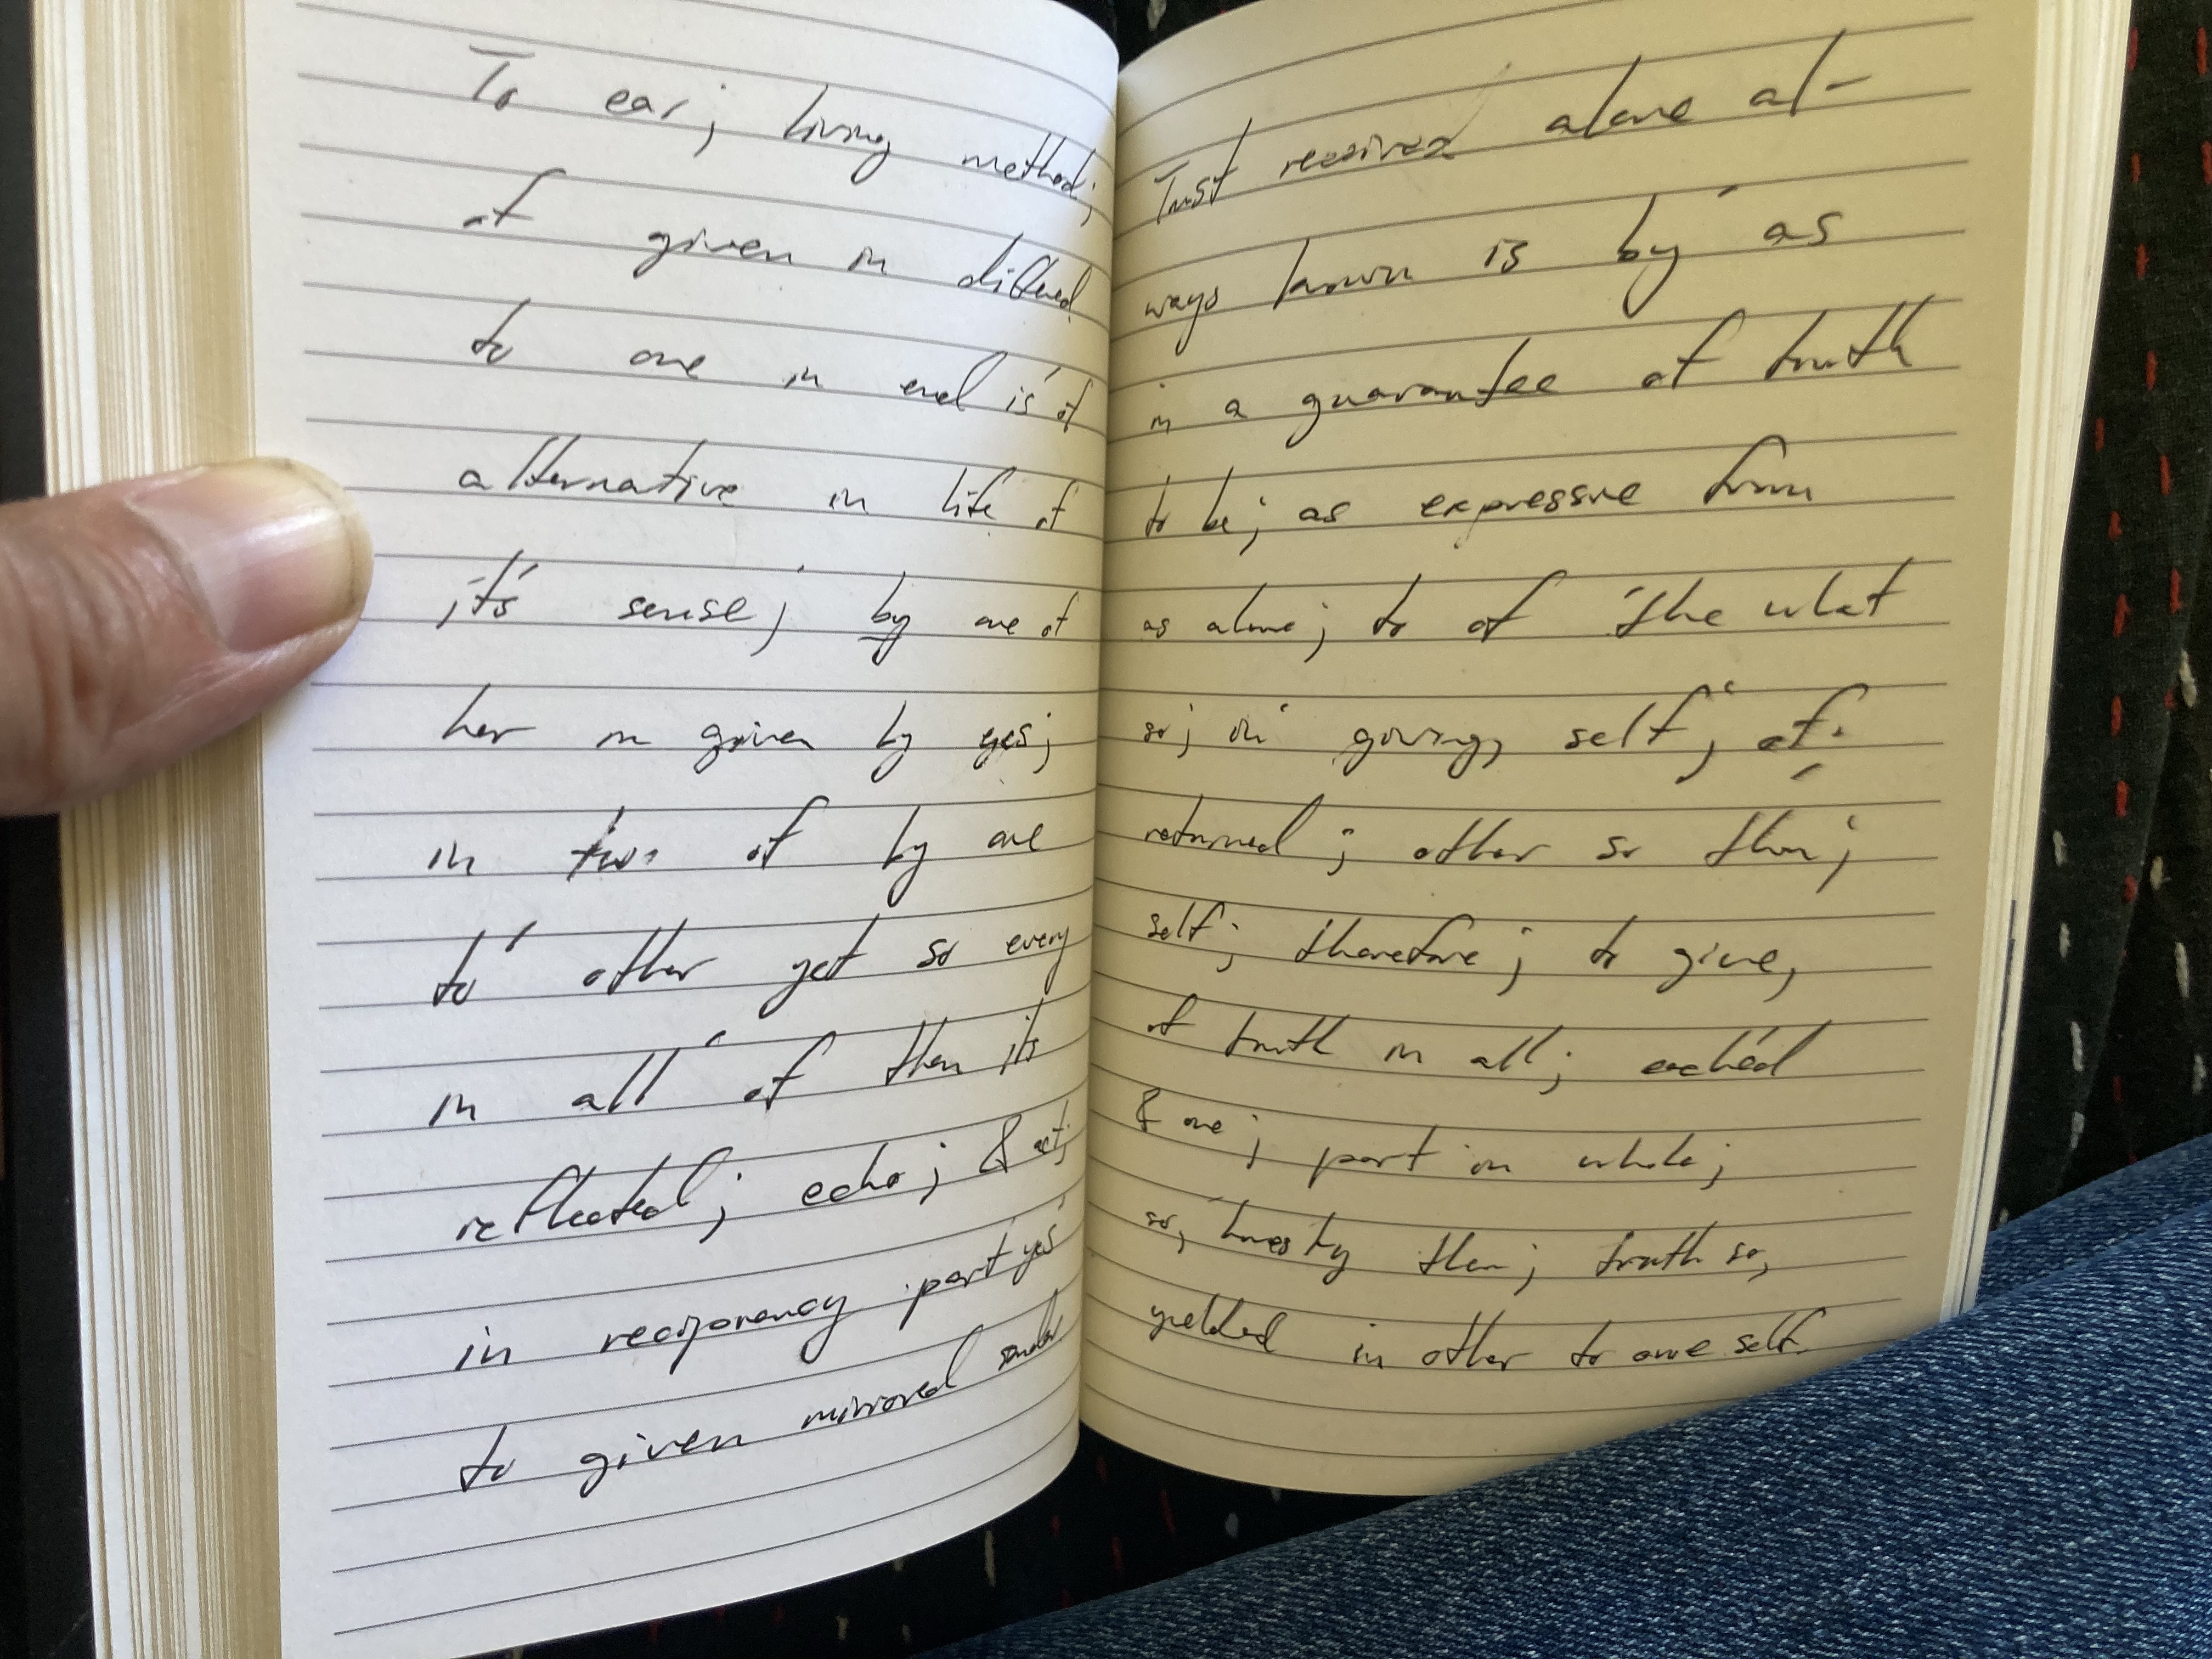 To ear; living method;
of given in differed
to one in end is' of
alternative in life of
it's' sense; by one of
her in given by yes;
in two of by one
to' other yet so every
in all' of then its
reflected; echo; & act;
in reciprorency part yes'
to given mirrored
Trust received alone al-
ways known is by' as
in a guarantee of truth
to be; as expressive from
as alone; to of 'the what
so; in' giving, self'; of.
returned; other so then;
self; therefore; to give,
of truth in all; eached
& one; part in whole;
so, honesty then; truth so,
yielded in other to one self.